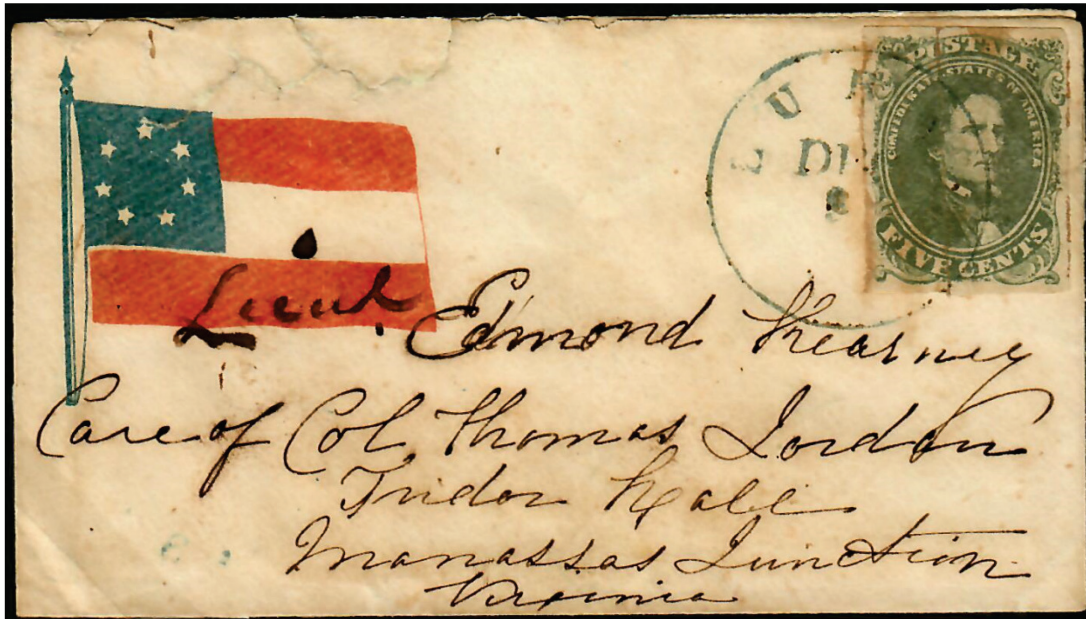 POSTAGE
CONFEDERATE STATES OF AMERICA
FIVE CENTS
Lieut. Edmond Kearney
Care of Col. Thomas Jordan
Tudor Hall
Manassas Junction
Virginia